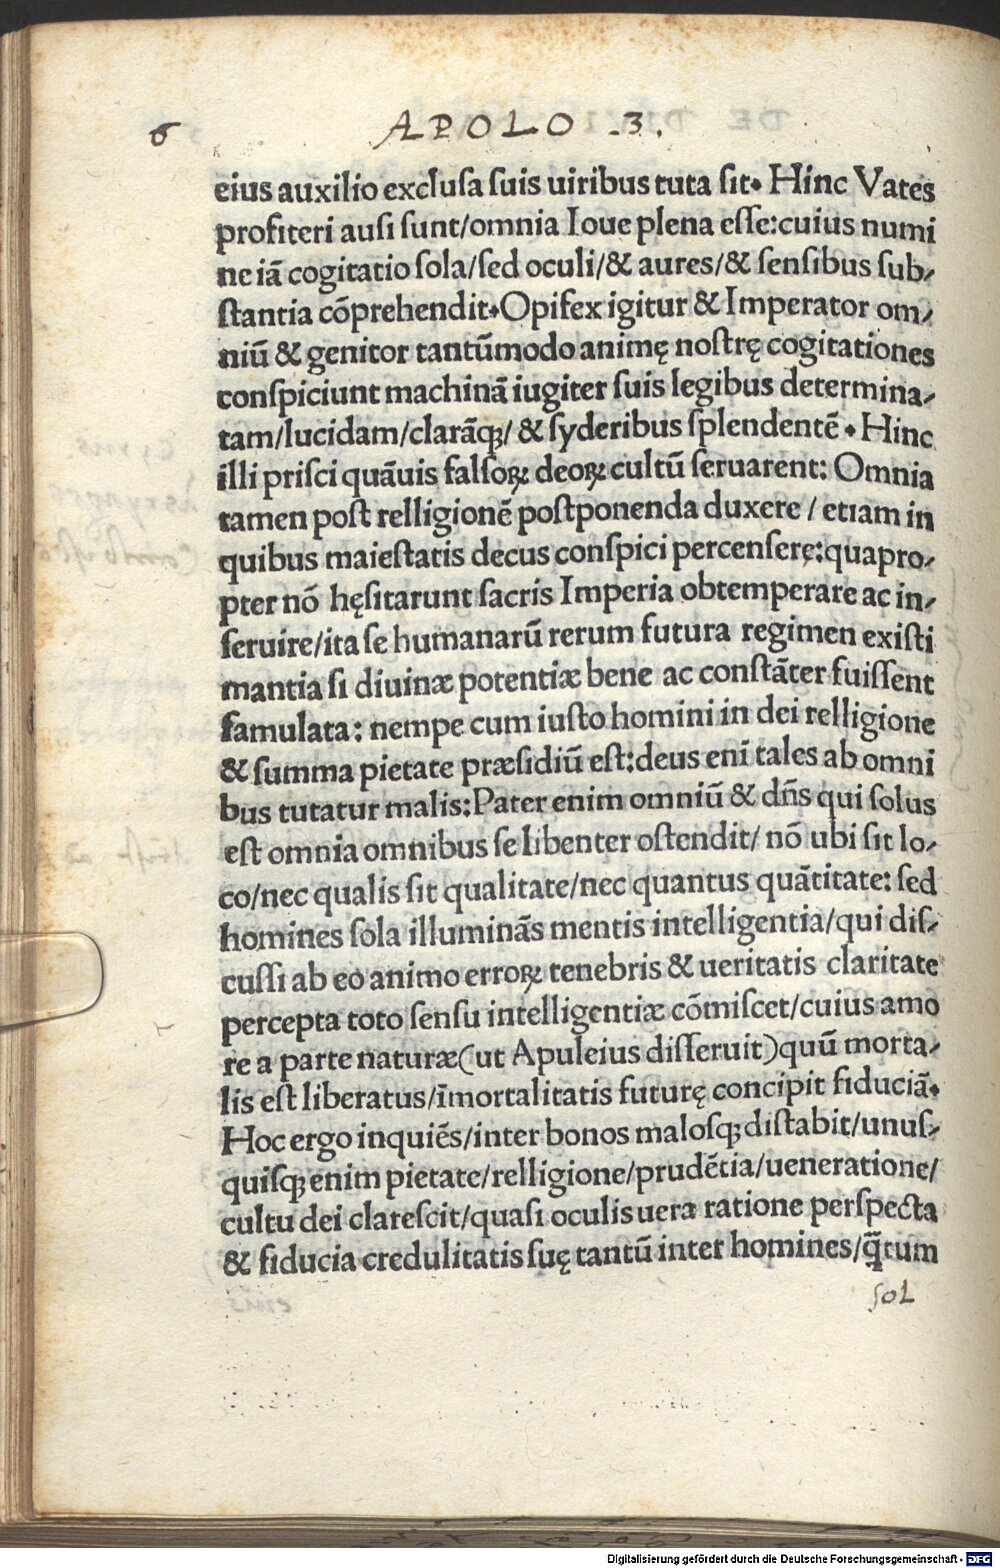 6 APOLO .3.
eius auxilio excluſa ſuis uiribus tuta ſit. Hinc Vates
profiteri auſi ſunt/omnia Ioue plena eſſe:cuius numi
ne iā cogitatio ſola/ſed oculi/& aures/& ſenſibus ſub-
ſtantia cōprehendit.Opifex igitur & Imperator om-
niū & genitor tantūmodo animę noſtrę cogitationes
conſpiciunt machinā iugiter ſuis legibus determina-
tam/lucidam/clarāꝗ;/ & ſyderibus ſplendentē . Hinc
illi priſci quāuis falſoꝝ deoꝝ cultū ſeruarent: Omnia
tamen poſt relligionē poſtponenda duxere / etiam in
quibus maieſtatis decus conſpici percenſerę:quapro-
pter nō hęſitarunt ſacris Imperia obtemperare ac in-
ſeruire/ita ſe humanarū rerum futura regimen exiſti
mantia ſi diuinæ potentiæ bene ac conſtāter fuiſſent
famulata: nempe cum iuſto homini in dei relligione
& ſumma pietate præſidiū eſt:deus eni tales ab omni
bus tutatur malis:Pater enim omniū & dn̄s qui ſolus
eſt omnia omnibus ſe libenter oſtendit/ nō ubi ſit lo-
co/nec qualis ſit qualitate/nec quantus quātitate: ſed
homines ſola illuminās mentis intelligentia/qui diſ-
cuſſi ab eo animo erroꝝ tenebris & ueritatis claritate
percepta toto ſenſu intelligentiæ cōmiſcet/cuius amo
re a parte naturæ(ut Apuleius diſſeruit)quū morta-
lis eſt liberatus/īmortalitatis futurę concipit fiduciā.
Hoc ergo inquiēs/inter bonos maloſꝗ; diſtabit/unuſ-
quiſꝗ; enim pietate/relligione/prudētia/ueneratione/
cultu dei clareſcit/quaſi oculis uera ratione perſpecta
& fiducia credulitatis ſuę tantū inter homines/q̄tum
ſol
Digitalisierung gefördert durch die Deutsche Forschungsgemeinschaft - DFG